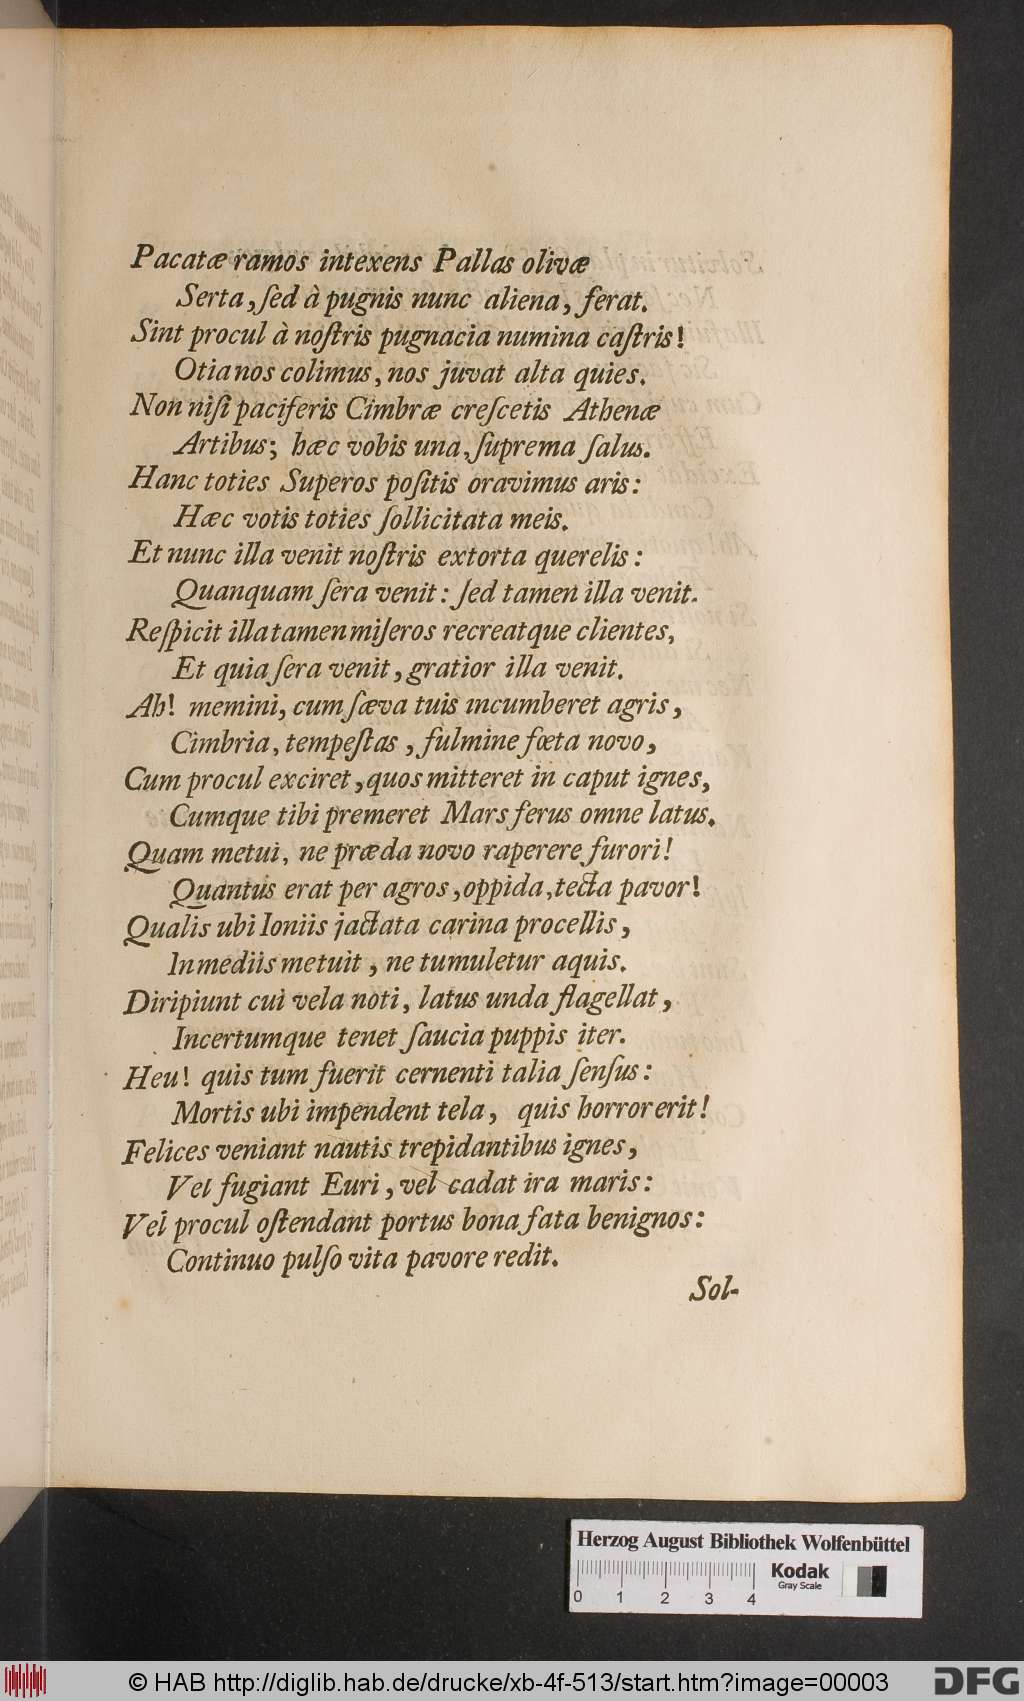 Pacatæ ramos intexens Pallas olivæ
Serta, ſed à pugnis nunc aliena, ferat.
Sint procul à noſtris pugnacia numina caſtris!
Otia nos colimus, nos juvat alta quies.
Non niſi paciferis Cimbræ creſcetis Athenæ
Artibus; hæc vobis una, ſuprema ſalus.
Hanc toties Superos poſitis oravimus aris:
Hæc votis toties ſollicitata meis.
Et nunc illa venit noſtris extorta querelis:
Quanquam ſera venit: ſed tamen illa venit.
Reſpicit illa tamen miſeros recreatque clientes,
Et quia ſera venit, gratior illa venit.
Ah! memini, cum ſæva tuis incumberet agris,
Cimbria, tempeſtas, fulmine fœta novo,
Cum procul exciret, quos mitteret in caput ignes,
Cumque tibi premeret Mars ferus omne latus.
Quam metui, ne præda novo raperere furori!
Quantus erat per agros, oppida, tecta pavor!
Qualis ubi Ioniis jactata carina procellis,
In mediis metuit, ne tumuletur aquis.
Diripiunt cui vela noti, latus unda flagellat,
Incertumque tenet ſaucia puppis iter.
Heu! quis tum fuerit cernenti talia ſenſus:
Mortis ubi impendent tela, quis horror erit!
Felices veniant nautis trepidantibus ignes,
Vel fugiant Euri, vel cadat ira maris:
Vel procul oſtendant portus bona fata benignos:
Continuo pulſo vita pavore redit.
Sol-
Herzog August Bibliothek Wolfenbüttel
Kodak
Gray Scale
0 1 2 3 4
© HAB http://diglib.hab.de/drucke/xb-4f-513/start.htm?image=00003
DFG